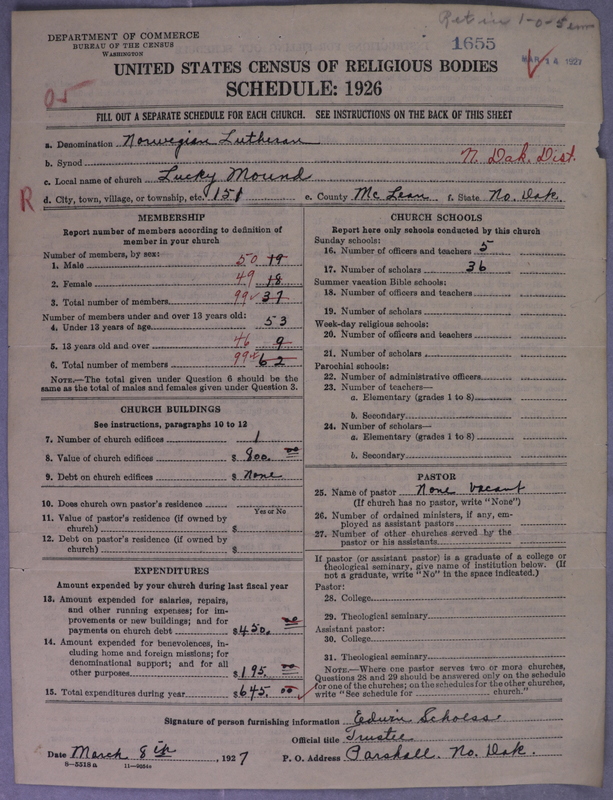 Ret in 1-0-5
DEPARTMENT OF COMMERCE
BUREAU OF THE CENSUS
WASHINGTON
1655
MAR 14 1927
UNITED STATES CENSUS OF RELIGIOUS BODIES
SCHEDULE: 1926
FILL OUT A SEPARATE SCHEDULE FOR EACH CHURCH. SEE INSTRUCTIONS ON THE BACK OF THIS SHEET
a. Denomination Norwegian Lutheran
b. Synod N. Dak. Dist.
c. Local name of church Lucky Mound
R d. City, town, village, or township, etc. 151 e. County McLean f. State No. Dak.
MEMBERSHIP
Report number of members according to definition of
member in your church
Number of members, by sex:
1. Male 50 19
2. Female 49 18
3. Total number of members 99 37
Number of members under and over 13 years old:
4. Under 13 years of age 53
5. 13 years old and over 46 9
6. Total number of members 99 62
NOTE.—The total given under Question 6 should be
the same as the total of males and females given under Question 3.
CHURCH BUILDINGS
See instructions, paragraphs 10 to 12
7. Number of church edifices 1
8. Value of church edifices $ 800.00
9. Debt on church edifices $ None
10. Does church own pastor's residence
Yes or No
11. Value of pastor's residence (if owned by
church) $
12. Debt on pastor's residence (if owned by
church) $
EXPENDITURES
Amount expended by your church during last fiscal year
13. Amount expended for salaries, repairs,
and other running expenses; for im-
provements or new buildings; and for
payments on church debt $ 450.00
14. Amount expended for benevolences, in-
cluding home and foreign missions; for
denominational support; and for all
other purposes $ 195.00
15. Total expenditures during year $ 645.00
CHURCH SCHOOLS
Report here only schools conducted by this church
Sunday schools:
16. Number of officers and teachers 5
17. Number of scholars 36
Summer vacation Bible schools:
18. Number of officers and teachers
19. Number of scholars
Week-day religious schools:
20. Number of officers and teachers
21. Number of scholars
Parochial schools:
22. Number of administrative officers
23. Number of teachers—
a. Elementary (grades 1 to 8)
b. Secondary
24. Number of scholars—
a. Elementary (grades 1 to 8)
b. Secondary
PASTOR
25. Name of pastor None vacant
(If church has no pastor, write "None")
26. Number of ordained ministers, if any, em-
ployed as assistant pastors
27. Number of other churches served by the
pastor or his assistants
If pastor (or assistant pastor) is a graduate of a college or
theological seminary, give name of institution below. (If
not a graduate, write "No" in the space indicated.)
Pastor:
28. College
29. Theological seminary
Assistant pastor:
30. College
31. Theological seminary
NOTE.—Where one pastor serves two or more churches,
Questions 28 and 29 should be answered only on the schedule
for one of the churches; on the schedules for the other churches,
write "See schedule for church."
Signature of person furnishing information Edwin Schoess
Official title Trustee
Date March 8th, 1927 P. O. Address Parshall, No. Dak.
8-5518a 11-9254a